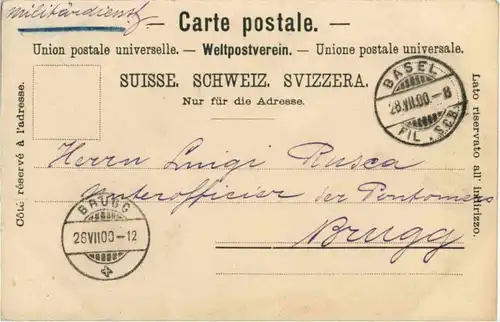 Militärdienst
— Carte postale. —
Union postale universelle. — Weltpostverein. — Unione postale universale.
SUISSE. SCHWEIZ. SVIZZERA.
Nur für die Adresse.
Côté réservé à l'adresse.
Lato riservato all' indirizzo.
BASEL
28.VII.00.–8
FIL. SCB.
Herrn Luigi Rusca
Unterofficier der Pontoniers
Brugg
BRUGG
28VII00–12